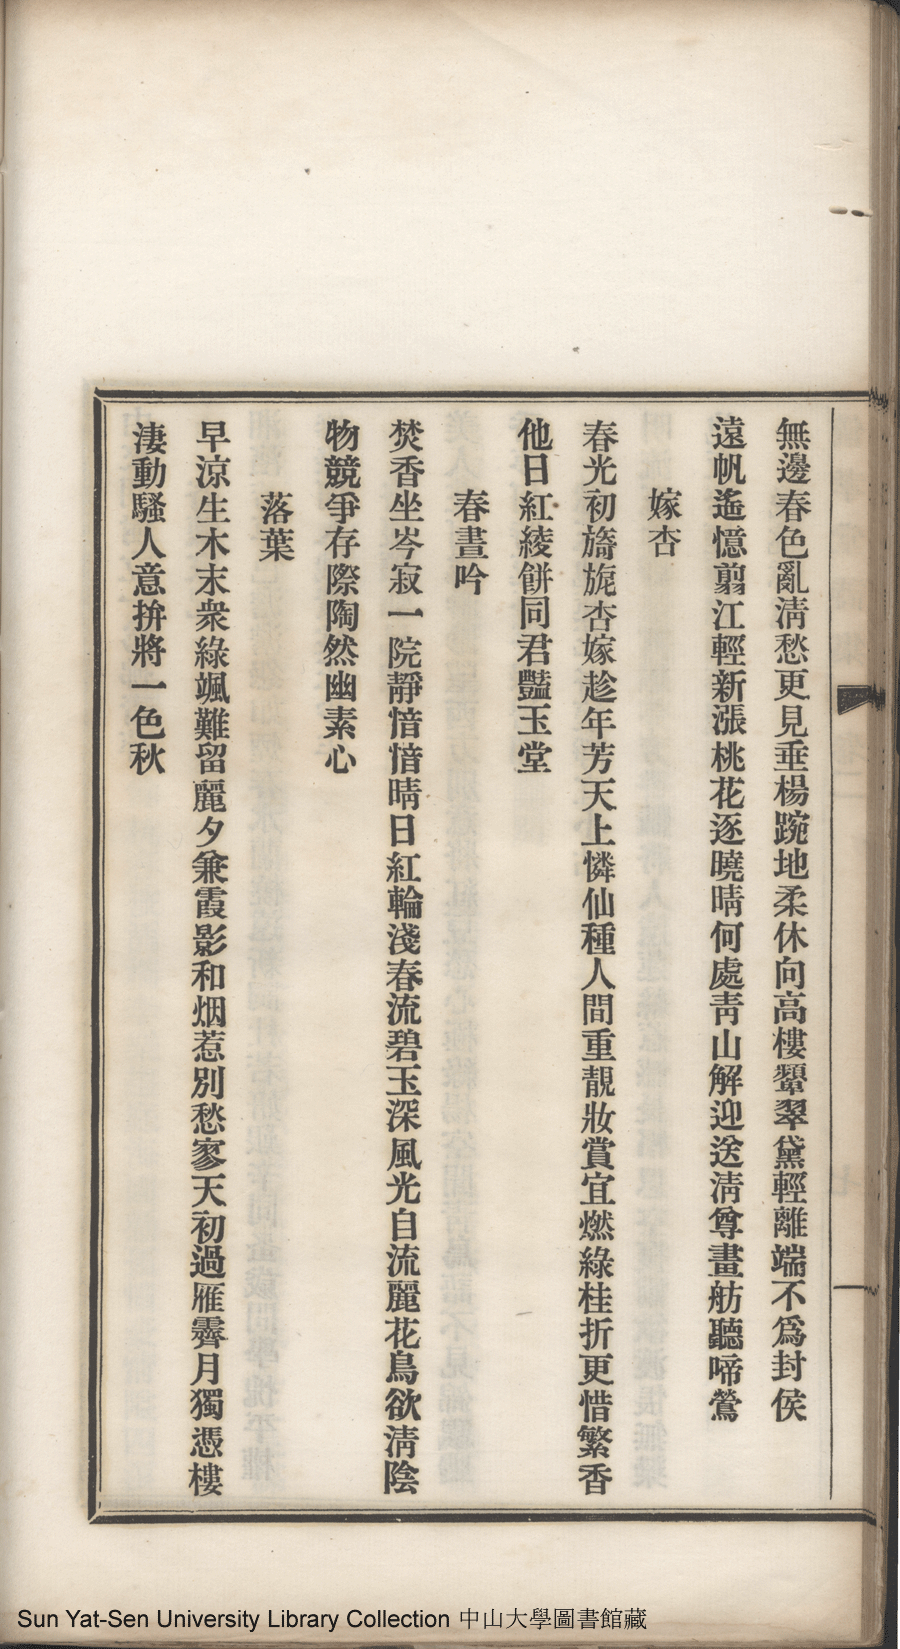 無邊春色亂淸愁更見垂楊踠地柔休向高樓顰翠黛輕離端不爲封侯
遠帆遙憶翦江輕新漲桃花逐曉晴何處靑山解迎送淸尊畫舫聽啼鶯
嫁杏
春光初旖旎杏嫁趁年芳天上憐仙種人間重靚妝賞宜燃綠桂折更惜繁香
他日紅綾餅同君豔玉堂
春晝吟
焚香坐岑寂一院靜愔愔晴日紅輪淺春流碧玉深風光自流麗花鳥欲淸陰
物競爭存際陶然幽素心
落葉
早涼生木末衆綠颯難留麗夕兼霞影和烟惹別愁寥天初過雁霽月獨憑樓
淒動騷人意拚將一色秋
Sun Yat-Sen University Library Collection 中山大學圖書館藏